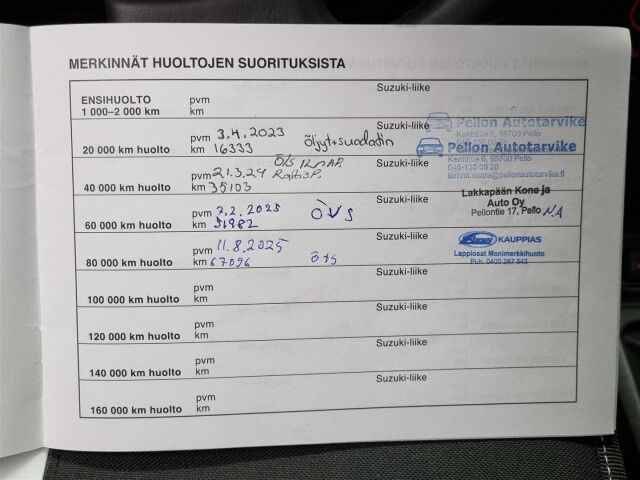 MERKINNÄT HUOLTOJEN SUORITUKSISTA
Suzuki-liike
ENSIHUOLTO pvm
1 000–2 000 km km
Suzuki-liike
Pellon Autotarvike
Kenttätie 6, 95700 Pello
pvm 3.4.2023
20 000 km huolto km 16333 öljyt+suodatin
Pellon Autotarvike
Kenttätie 6, 95700 Pello
045-130 09 28
tommi.vaara@pellonautotarvike.fi
pvm 21.3.24
40 000 km huolto km 35103
Lakkapään Kone ja
Auto Oy
Pellontie 17, Pello N.A
pvm 2.2.2025 ÖVS
60 000 km huolto km 51982
Suzuki-liike
KAUPPIAS
Lappiosat Monimerkkihuolto
Puh. 0400 287 543
pvm 11.8.2025
80 000 km huolto km 67096 Ö+S
Suzuki-liike
pvm
100 000 km huolto km
Suzuki-liike
pvm
120 000 km huolto km
Suzuki-liike
pvm
140 000 km huolto km
Suzuki-liike
pvm
160 000 km huolto km